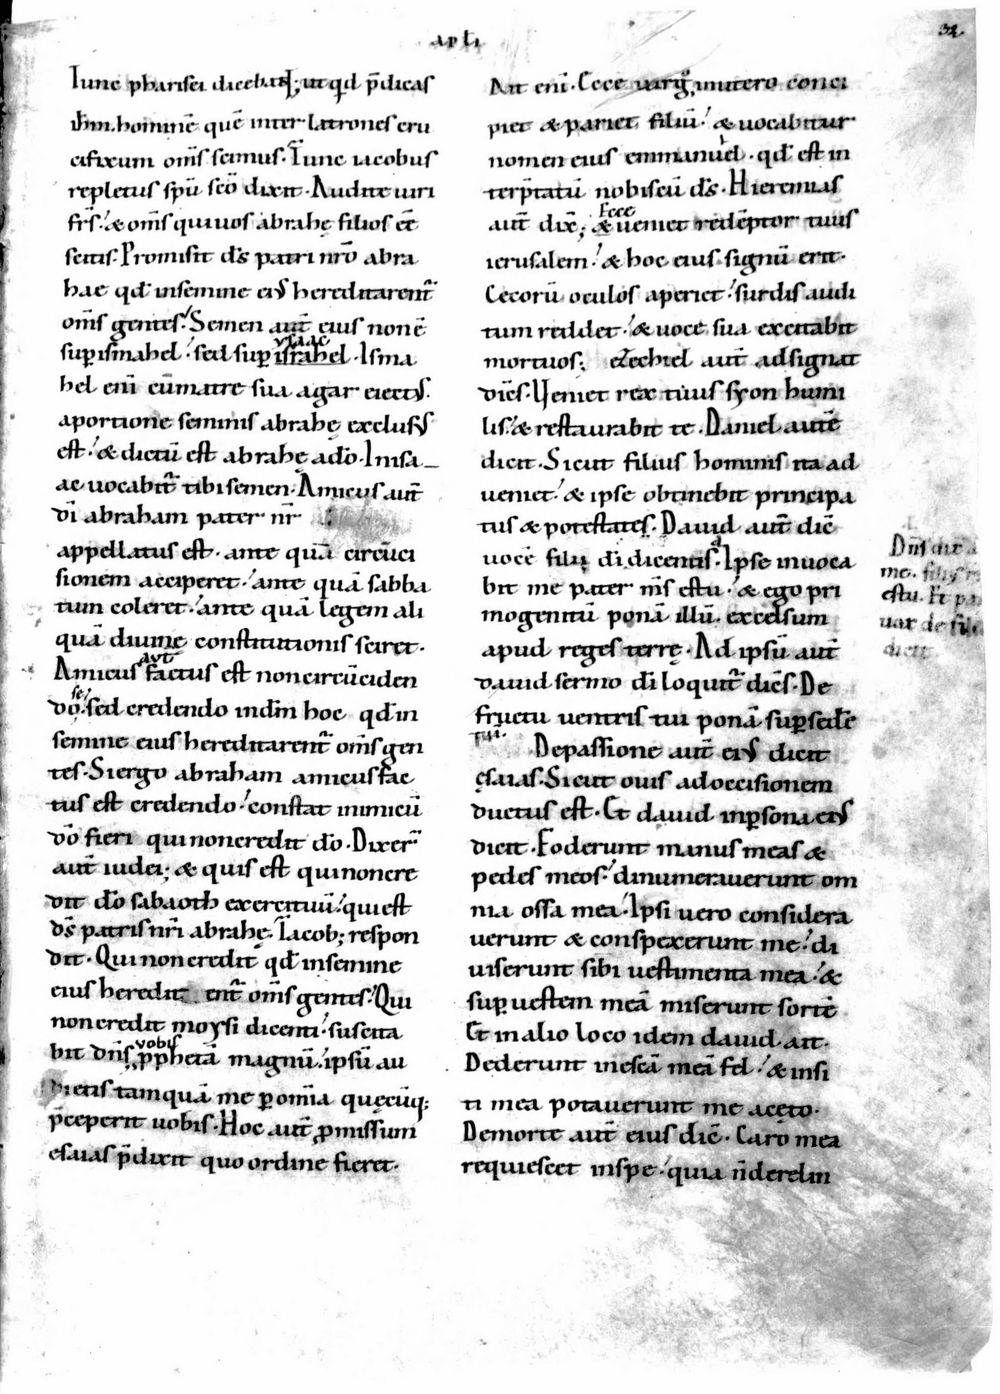 apli
32
Tunc pharisei dicebant; ut qd p̄dicas
ih̄m. hominē quē inter latrones cru
cifixum om̄s scimus. Tunc iacobus
repletus sp̄u scō dixit. Audite uiri
fr̄s. & om̄s qui uos abrahę filios eē
scitis. Promisit d̄s patri nr̄o abra
hae qd̄ in semine ei' hereditarent̄
om̄s gentes. Semen aut̄ eius non ē
sup ismahel. sed sup israhel. Isma
ysaac
hel eni cū matre sua agar eiect'.
a portione seminis abrahę exclus'
est. & dictū est abrahę a dō. In isa
ac uocabit̄ tibi semen. Amicus aut̄
dī abraham pater nr̄
appellatus est. ante quā circūci
sionem acciperet. ante quā sabba
tum coleret. ante quā legem ali
quā diuine constitutionis sciret.
Amicus aut̄ factus est non circūciden
do se. sed credendo in dm̄ hoc qd̄ in
semine eius hereditarent̄ om̄s gen
tes. Si ergo abraham amicus fac
tus est credendo. constat inimicū
dō fieri qui non credit dō. Dixer̄
aut̄ iudei; & quis est qui non cre
dit dō sabaoth exercituū. qui est
d̄s patris nr̄i abrahę. Iacob; respon
dit. Qui non credit qd̄ in semine
eius heredit ent̄ om̄s gentes. Qui
non credit moysi dicenti. suscita
bit dn̄s uobis pphetā magnū. ipsū au
dietis tamquā me p omīa quęcūq;
p̄ceperit uobis. Hoc aut̄ pmissum
esaias p̄dixit quo ordine fieret.
Ait eni. Ecce uirg̊ in utero conci
piet & pariet filiū. & uocabitur
nomen eius emmanuel. qd̄ est in
terp̄tatū nobiscū d̄s. Hieremias
aut̄ dix̄; Ecce & ueniet redēptor tuus
ierusalem. & hoc eius signū erit.
Cecorū oculos aperiet. surdis audi
tum reddet. & uoce sua excitabit
mortuos; ezechiel aut̄ adsignat
diēs. Ueniet rex tuus syon humi
lis. & restaurabit te. Daniel autē
dicit. Sicut filius hominis ita ad
ueniet. & ipse obtinebit principa
tus & potestates. Dauid aut̄ diē
uocē filii dī dicentis. Ipse inuoca
bit me pater m̄s es tu. & ego pri
mogenitū ponā illū. excelsum
apud reges terrę. Ad ipsū aut̄
dauid sermo dī loquit̄ diēs. De
fructu uentris tui ponā sup sedē
tuā.
De passione aut̄ ei' dicit
ęsaias. Sicut ouis ad occisionem
ductus est. Et dauid in psona ei'
dicit. Foderunt manus meas &
pedes meos. dinumerauerunt om
nia ossa mea. Ipsi uero considera
uerunt & conspexerunt me. di
uiserunt sibi uestimenta mea. &
sup uestem meā miserunt sortē
Et in alio loco idem dauid ait.
Dederunt in escā meā fel. & in si
ti mea potauerunt me aceto.
De morte aut̄ eius diē. Caro mea
requiescet in spe. quia n̄ derelin
Dn̄s dix̄ a
me. filiꝰ m
es tu. Et pa
uat de fili
dicit